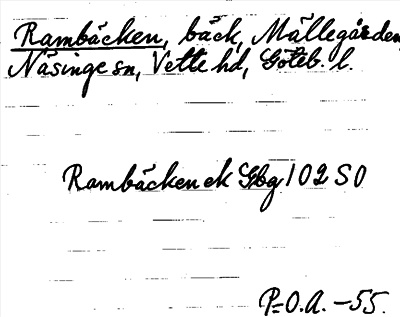 Rambäcken, bäck, Mällegården,
Näsinge sn, Vette hd, Göteb. l.
Rambäcken ek Gbg 102 SO
P=O.A. -55.